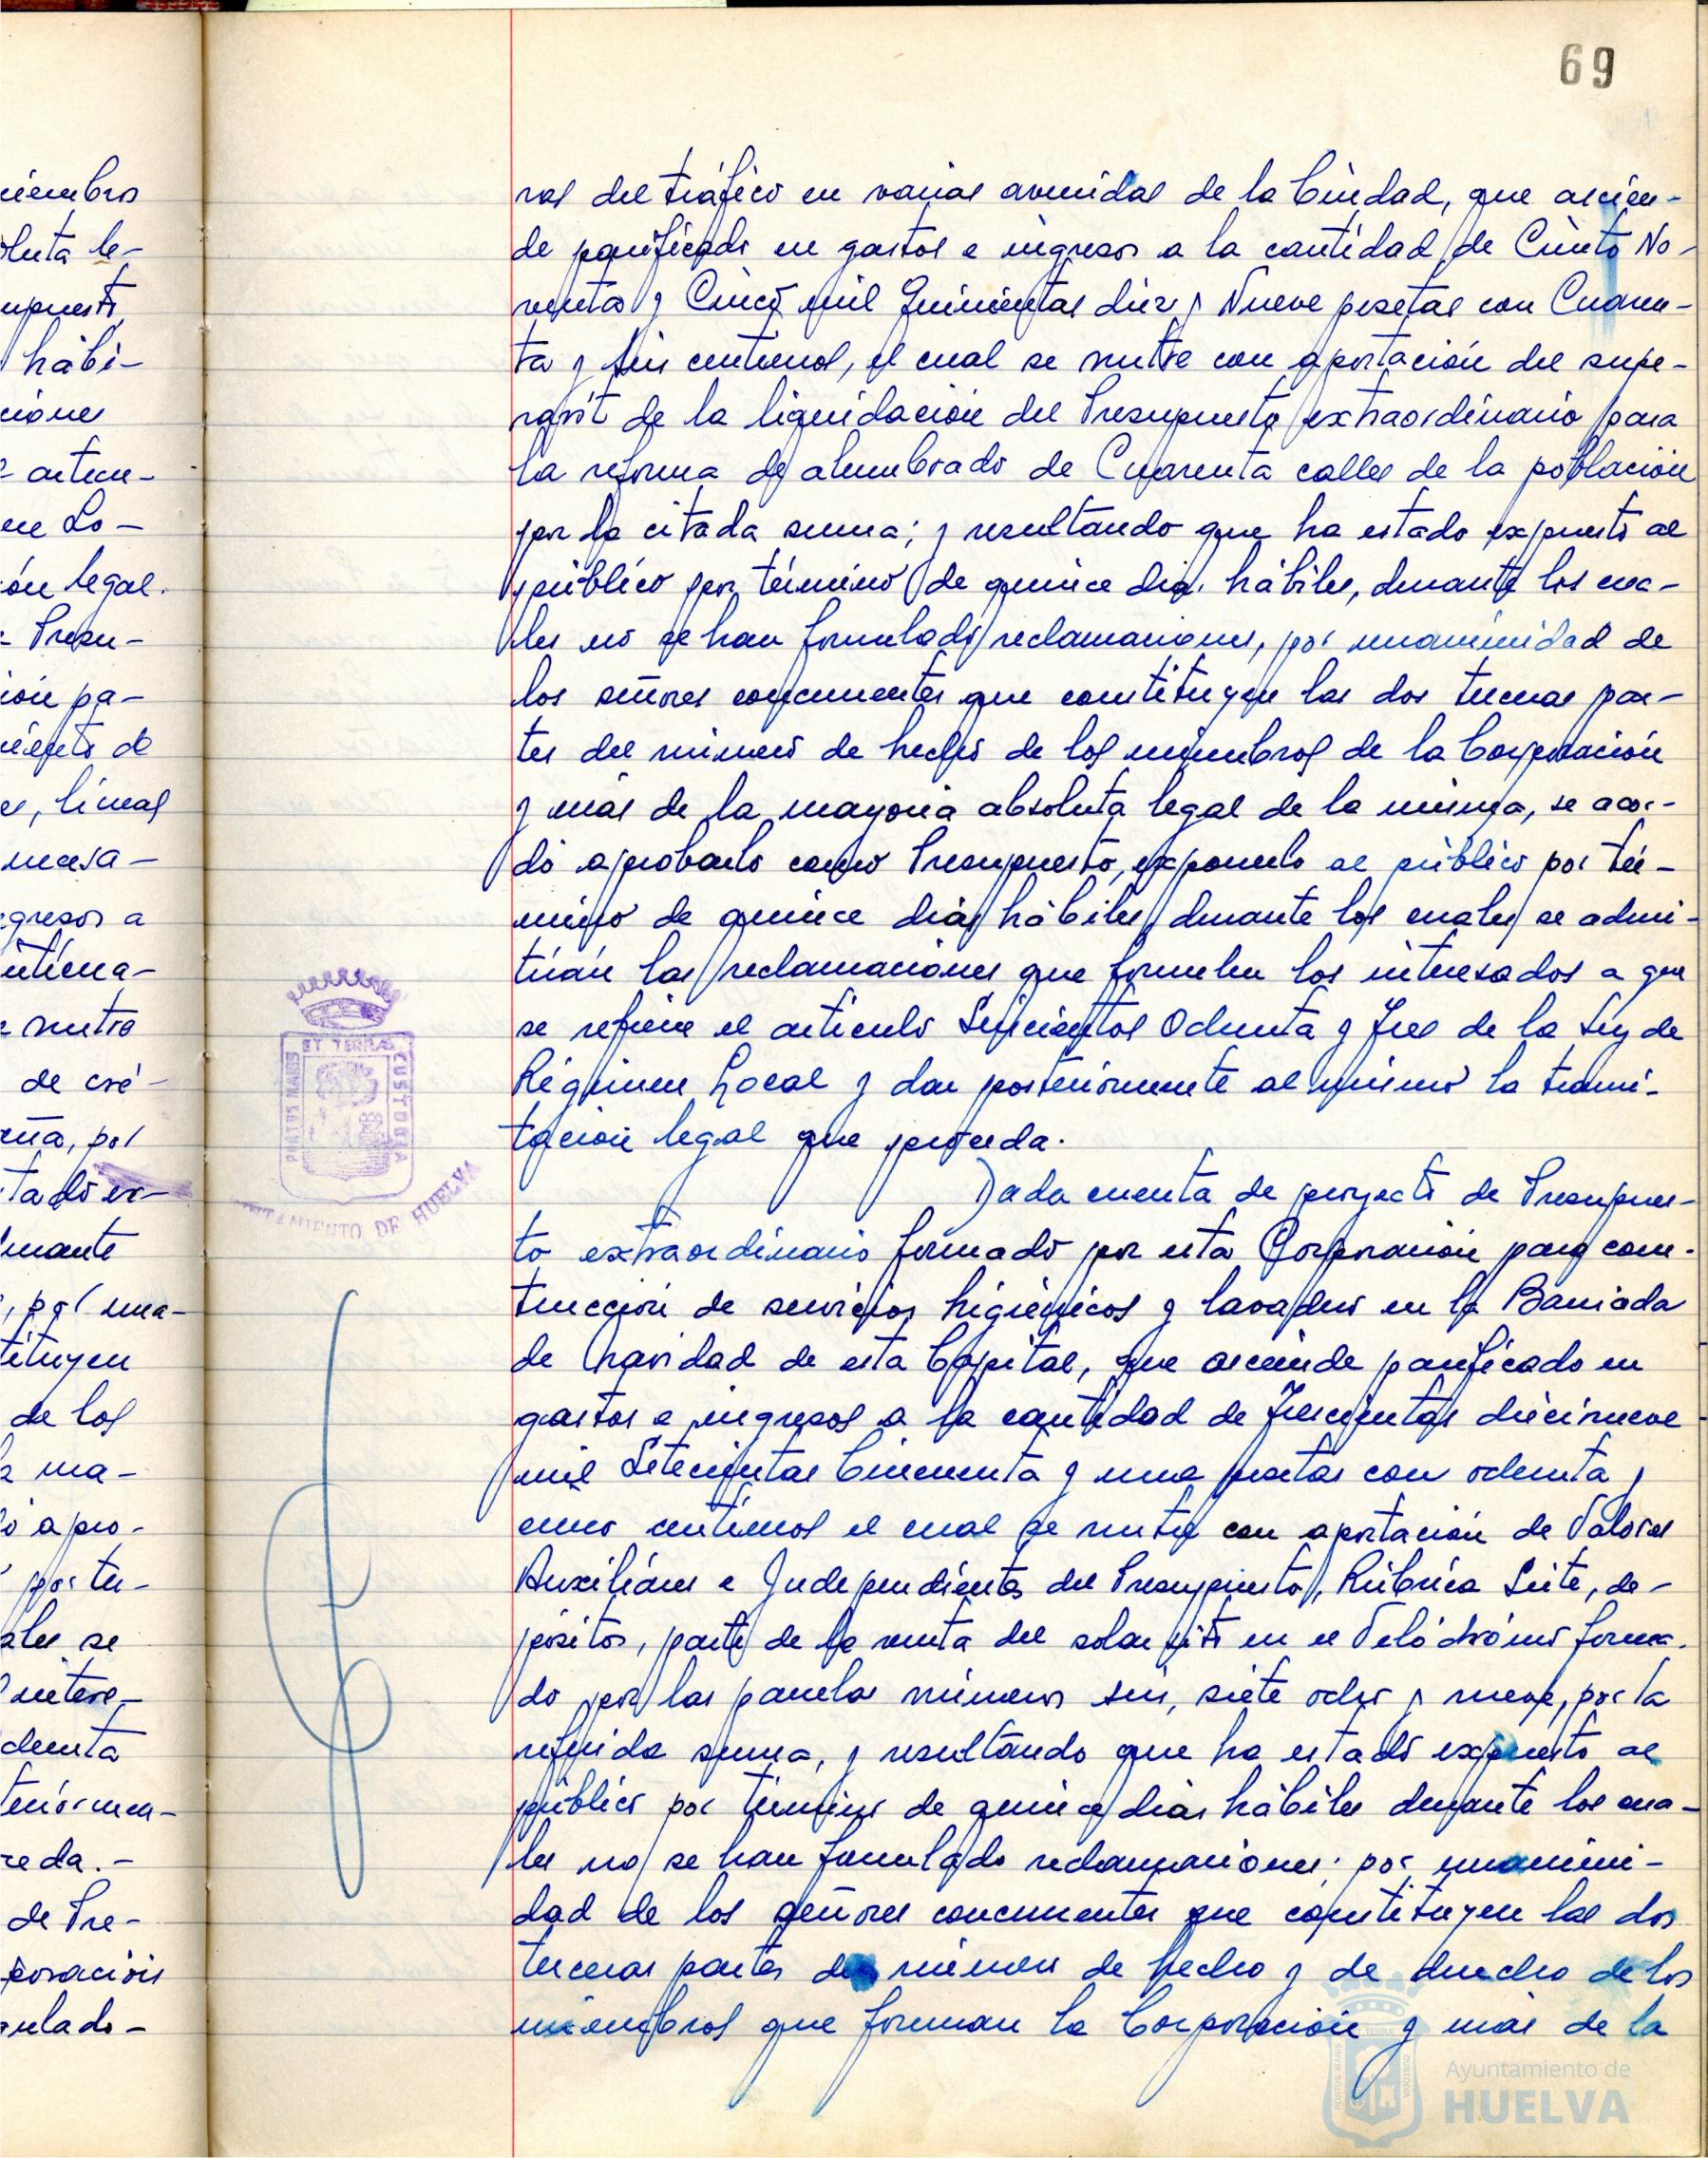 69
ras del tráfico en varias avenidas de la Ciudad, que ascien-
de panificado en gastos e ingresos a la cantidad de Ciento No-
venta y Cinco mil Quinientas diez y Nueve pesetas con Cuaren-
ta y Seis centimos, el cual se nutre con aportación del supe-
ravit de la liquidación del Presupuesto extraordinario para
la reforma de alumbrado de Cuarenta calles de la población
por la citada suma; y resultando que ha estado expuesto al
público por término de quince dias hábiles, durante los cua-
les no se han formulado reclamaciones, por unanimidad de
los señores concurrentes que constituyen las dos terceras par-
tes del número de hecho de los miembros de la Corporación
y más de la mayoria absoluta legal de la misma, se acor-
dó aprobarlo como Presupuesto, exponerlo al público por tér-
mino de quince dias hábiles, durante los cuales se admi-
tirán las reclamaciones que formulen los interesados a que
se refiere el articulo Seiscientos Ochenta y Tres de la Ley de
Régimen Local y dar posteriormente al mismo la trami-
tación legal que proceda.
Dada cuenta de proyecto de Presupues-
to extraordinario formado por esta Corporación para cons-
trucción de servicios higiénicos y lavaderos en la Barriada
de Navidad de esta Capital, que asciende panificado en
gastos e ingresos a la cantidad de Trescientas diecinueve
mil Setecientas Cincuenta y una pesetas con ochenta y
cinco centimos el cual se nutre con aportación de Valores
Auxiliares e Independientes del Presupuesto, Rúbrica Siete, de-
pósitos, parte de la venta del solar sito en el Velódromo forma-
do por las parcelas números seis, siete ocho y nueve, por la
referida suma, y resultando que ha estado expuesto al
público por término de quince dias hábiles durante los cua-
les no se han formulado reclamaciones; por unanimi-
dad de los señores concurrentes que constituyen las dos
terceras partes del número de hecho y de derecho de los
miembros que forman la Corporación y más de la
PORTUS MARIS
ET TERRAE
CUSTODIA
AYUNTAMIENTO DE HUELVA
Ayuntamiento de
HUELVA